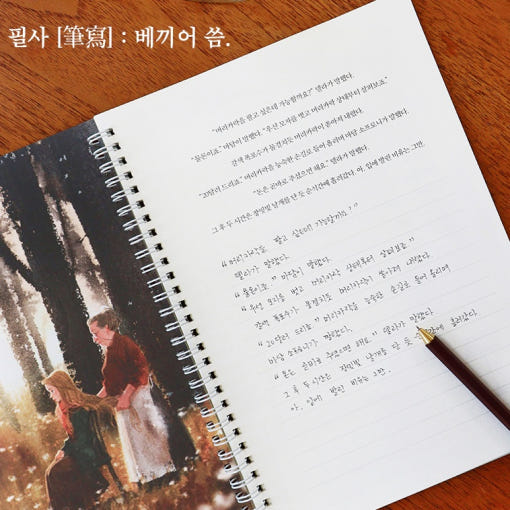 필사 [筆寫] : 베끼어 씀.
"머리카락을 팔고 싶은데 가능할까요?" 델라가 말했다.
"물론이죠." 마담이 말했다. "우선 모자를 벗고 머리카락 상태부터 살펴보죠."
갈색 폭포수가 물결치듯 머리카락이 쏟아져 내렸다.
"20달러 드리죠." 머리카락을 능숙한 손길로 들어 올리며 마담 소프로니가 말했다.
"돈은 곧바로 주셨으면 해요." 델라가 말했다.
그 후 두 시간은 장밋빛 날개를 단 듯 순식간에 흘러갔다. 아, 입에 발린 비유는 그만.
"머리카락을 팔고 싶은데 가능할까요?"
델라가 말했다.
"물론이죠." 마담이 말했다.
"우선 모자를 벗고 머리카락 상태부터 살펴보죠."
갈색 폭포수가 물결치듯 머리카락이 쏟아져 내렸다.
"20달러 드리죠." 머리카락을 능숙한 손길로 들어 올리며
마담 소프로니가 말했다.
"돈은 곧바로 주셨으면 해요." 델라가 말했다.
그 후 두 시간은 장밋빛 날개를 단 듯 흘러갔다.
아, 입에 발린 비유는 그만.